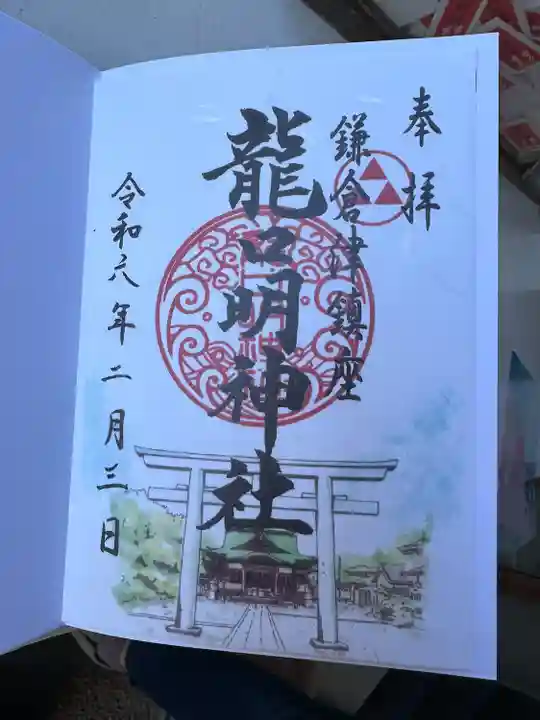 奉拝
鎌倉津鎮座
龍口明神社
令和六年二月三日